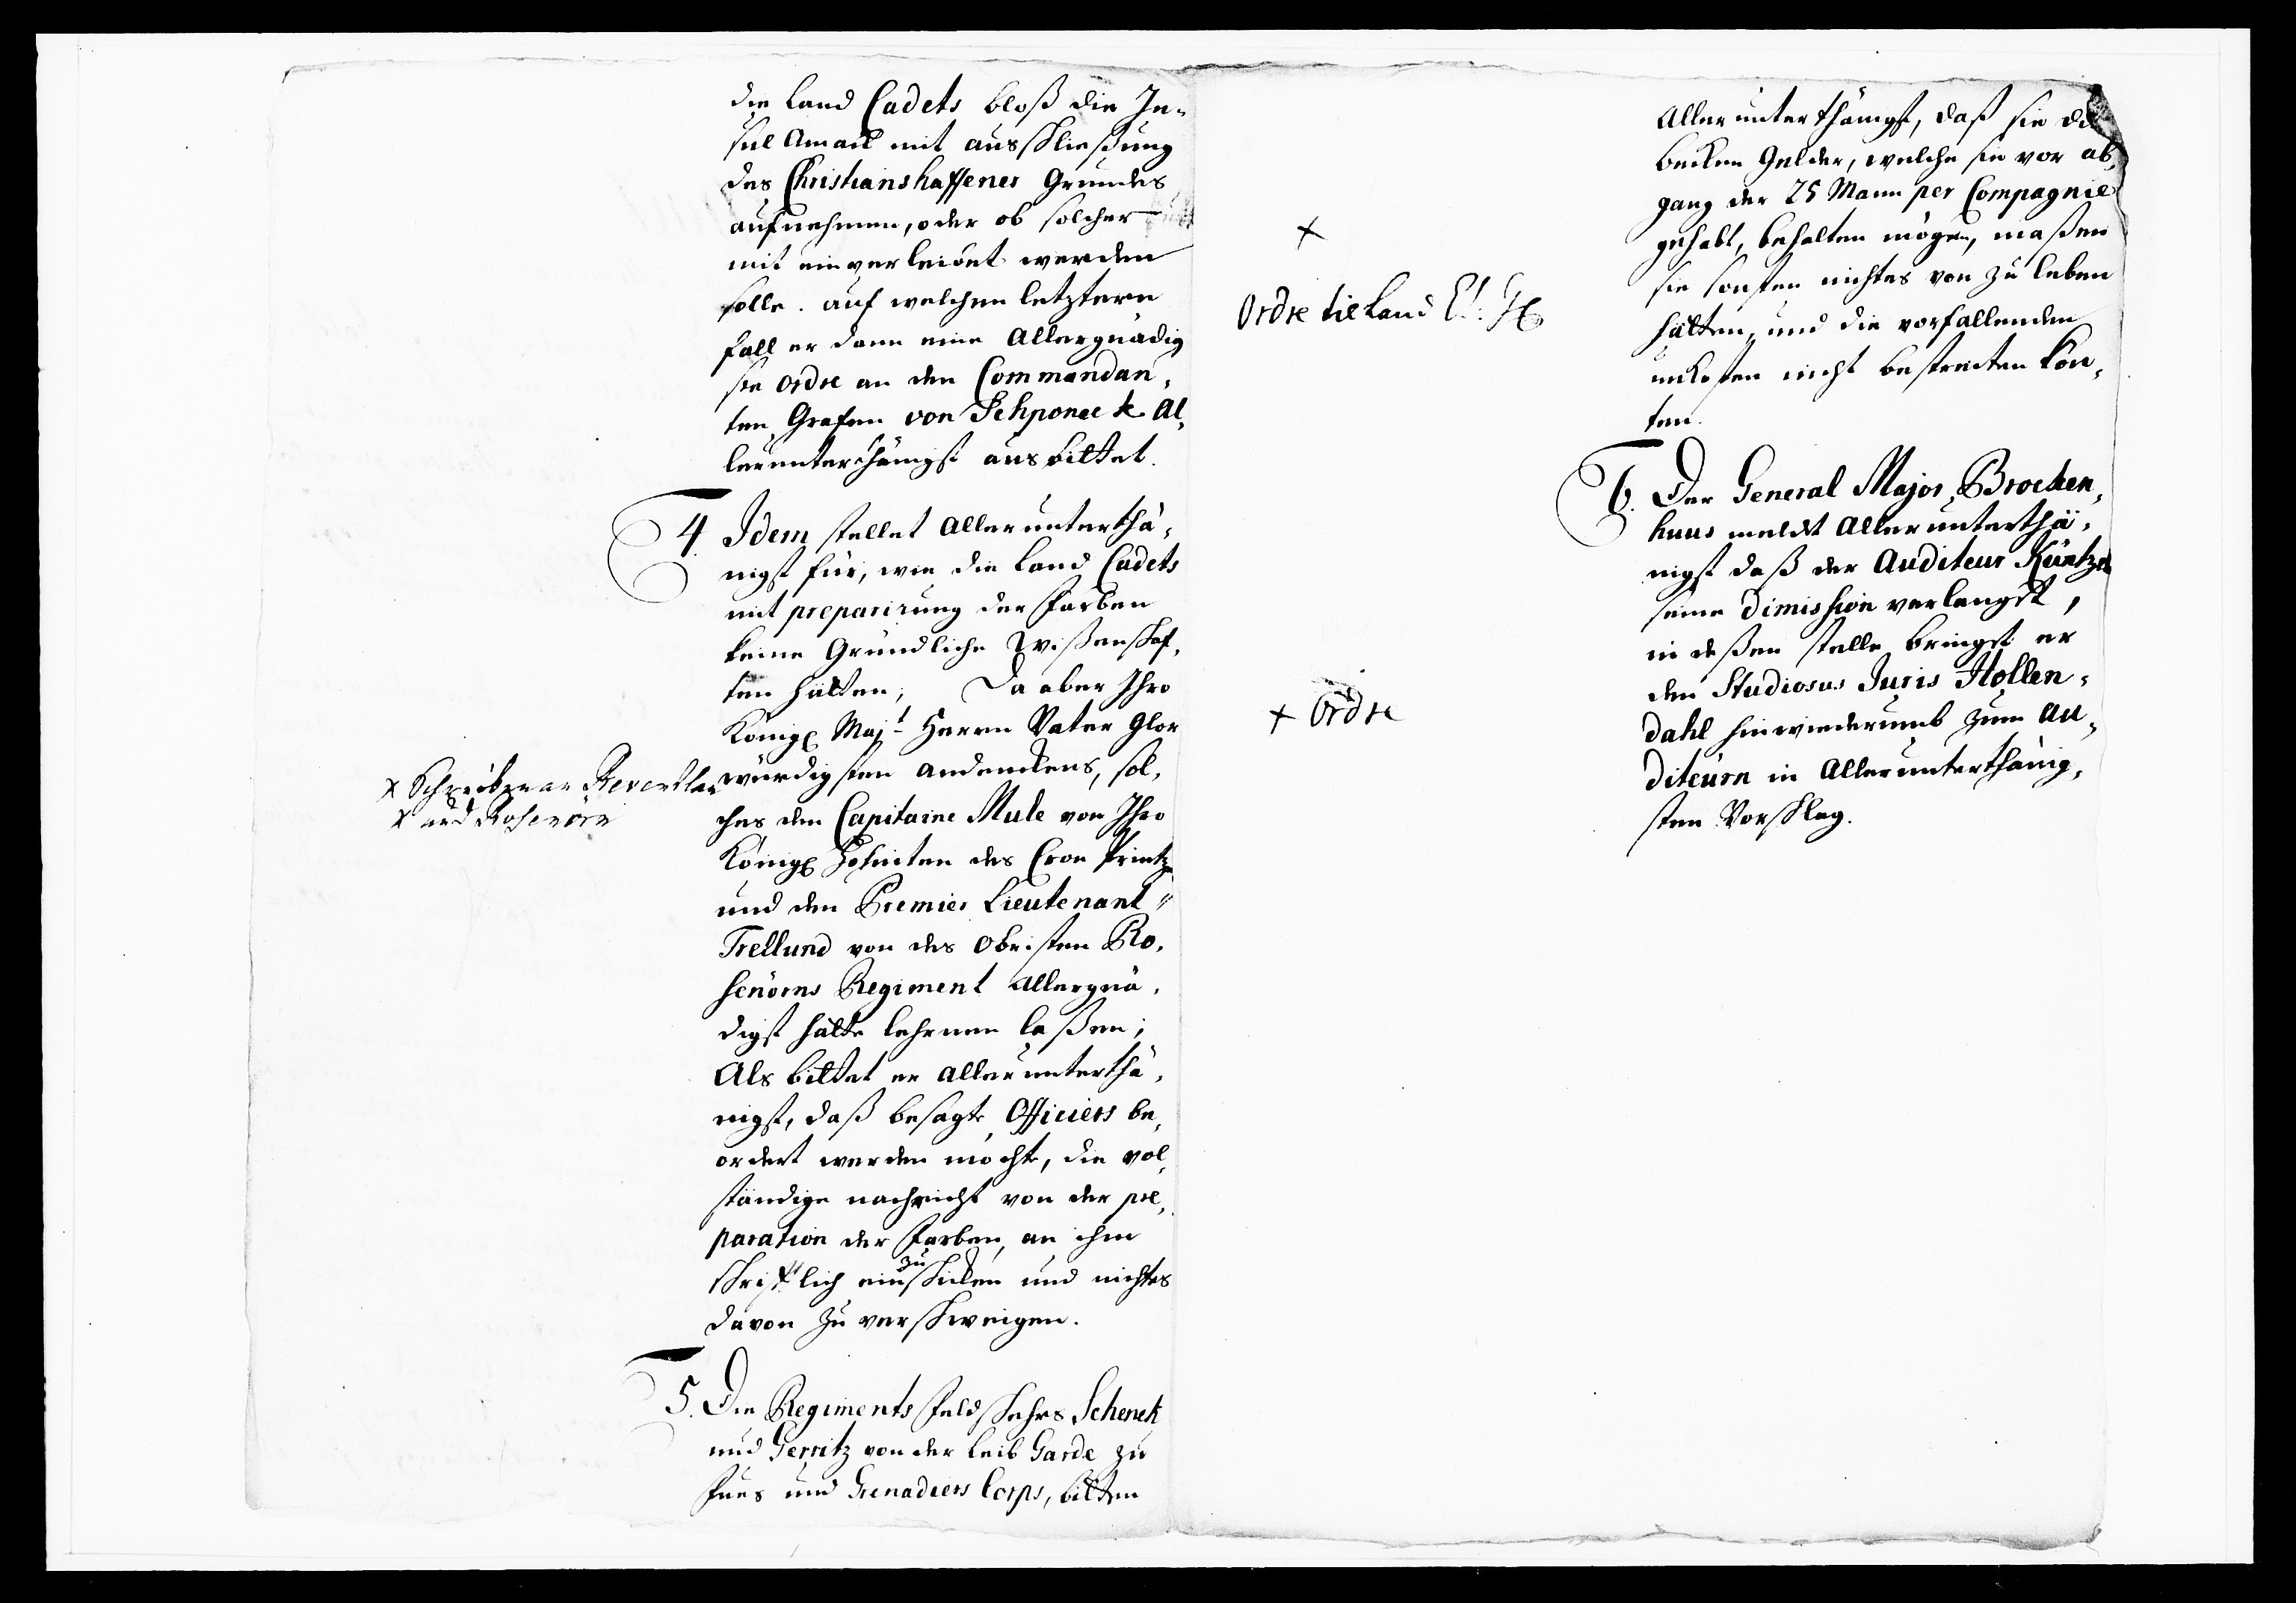 die Land Cadets bloß die In-
sul Amack mit ausschließung
des Christianshaffener Grundes
aufnehmen, oder ob solcher
mit einverleibet werden
solle. auf welchen letztern
fall er dann eine Allergnädig
ste ordre an den Commandan,
ten, Grafen von Schponeck Al,
lerunterthänigst ausbittet.
4. Idem stellet Allerunterthä,
nigst für, wie die Land Cadets
mit preparirung der Farben
keine Gründliche Wißenschaf,
ten hätten, Da aber Ihro
Königl Majt Herrn Vater Glor
würdigsten andenckens, sol,
ches den Capitaine Mule von Ihro
Königl Hoheiten des Cron Printz
und den Premier Lieutenant
Trellund von des Obristen Ro,
senörns Regiment Allergnä,
digst hätte lehrnen laßen;
Als bittet er allerunterthä,
nigst, daß besagte Officiers be,
ordert werden möchte, die vol,
ständige nachricht von der pre,
paration der Farben, an ihm
schriftlich einzuschicken und nichtes
davon zu verschweigen.
x Schreiben an Reventlau
x und Rosenörn
5. Die Regiments Feldschers Schenck
und Gerritz von der Leib Garde zu
Fues und Grenadiers Corps, bitten
x
Ordre til Land Et:
x Ordre
Allerunterthänigst, daß sie die
becken Gelder, welche sie vor ab,
gang der 25 Mann per Compagnie
gehabt, behalten mögen, maßen
sie sonsten nichtes von zu leben
hätten, und die vorfallenden
unkosten nicht bestreiten kön,
ten.
6. Der General Major Brocken,
huus meldt Allerunterthä,
nigst daß der Auditeur Küntzel
seine Dimission verlanget,
in deßen stelle bringet er
den Studiosus Juris Hollen,
dahl hinwiederumb zum Au,
diteurn in Allerunterthänig,
sten Vorschlag.